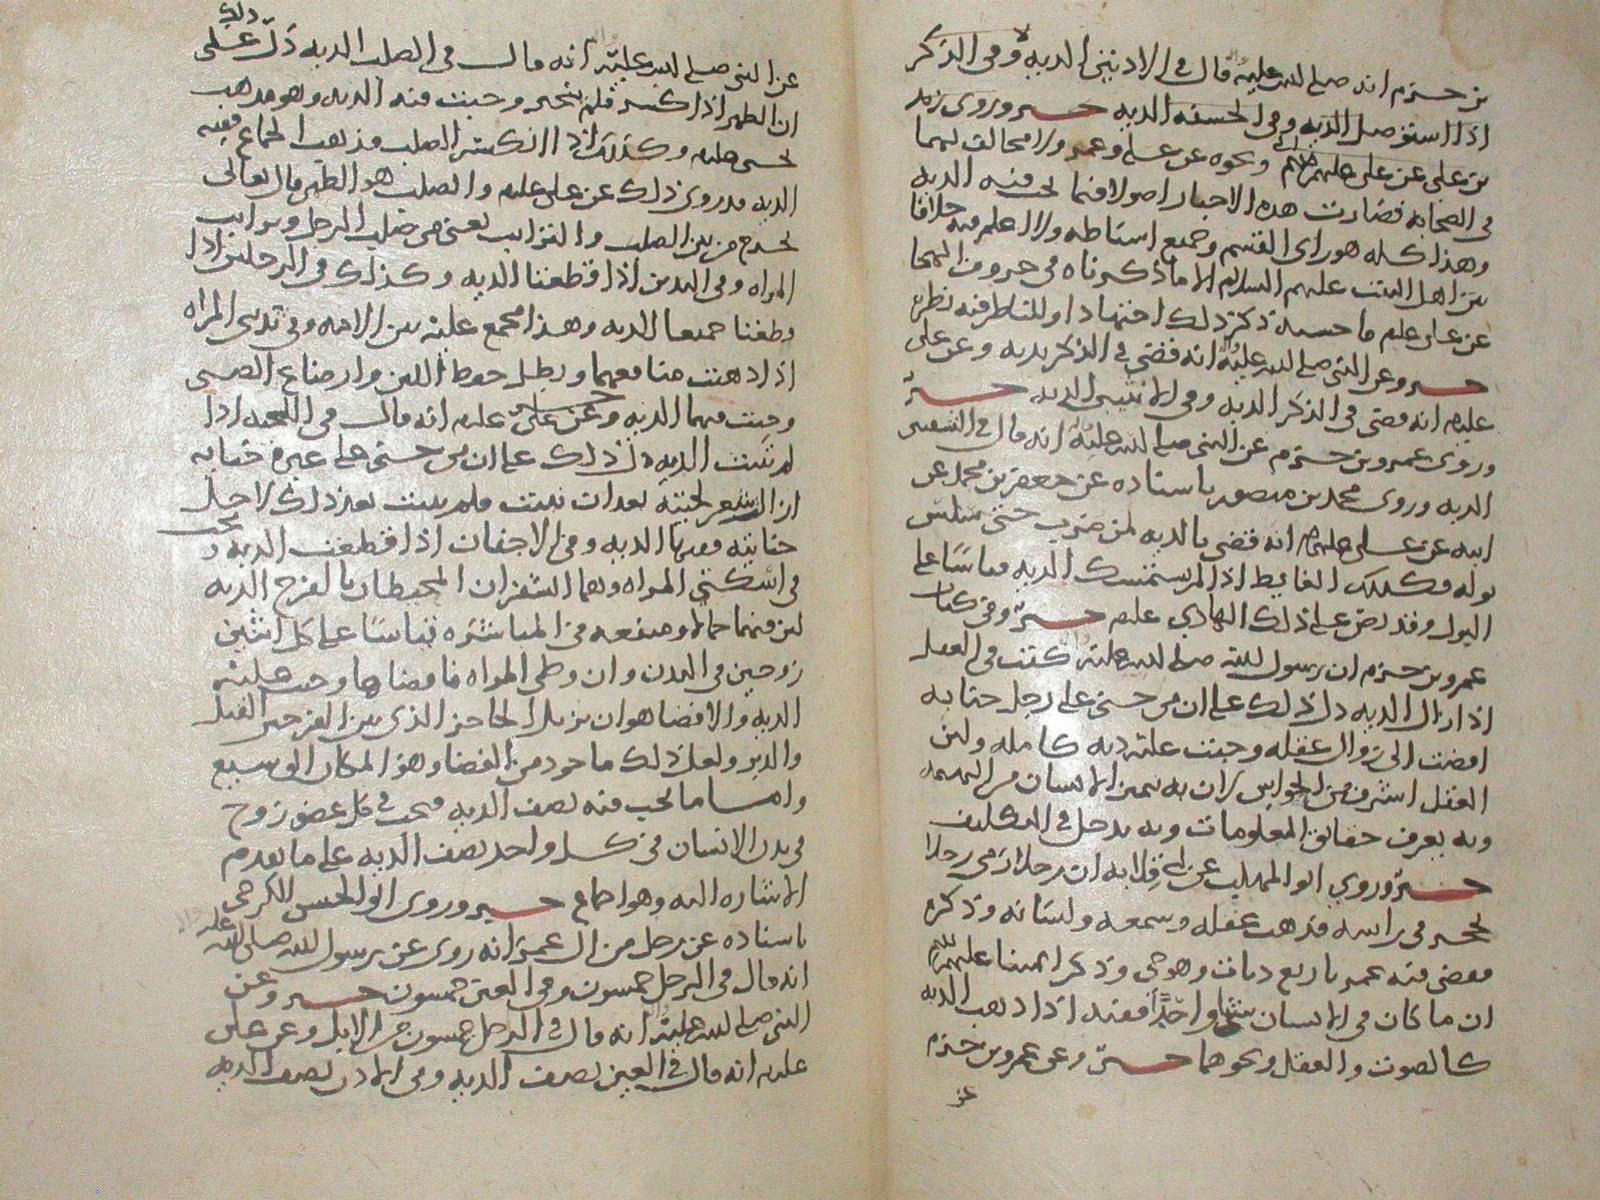 بن حزم انه صلى الله عليه قال في الاذنين الديه وفي الذكر
اذا استوصل الديه وفي الحشفه الديه خبر وروى زيد
بن علي عن علي عليهم السلام ونحوه عن علي وعمر ولا مخالف لهما
في الصحابه فصارت هذه الاخبار اصولا فيما يجب فيه الديه
وهذا كله هو راى القسم وجميع اسباطه ولا اعلم فيه خلافا
بين اهل البيت عليهم السلام الا ما ذكرناه في حروف الهجا
عن علي عليه ما حسبه ذكر ذلك اجتهادا وللناظر فيه نظره
خبر وعن النبي صلى الله عليه انه قضى في الذكر بديه وعن علي
عليه انه قضى في الذكر الديه وفي الانثيين الديه خبر
وروى عمرو بن حزم عن النبي صلى الله عليه انه قال في الشفتين
الديه وروى محمد بن منصور باسناده عن جعفر بن محمد عن
ابيه عن علي عليهم انه قضى بالديه لمن ضرب حتى سلس
بوله وكذلك الغايط اذا لم يستمسك الديه قياسا على
البول وقد نص على ذلك الهادي عليه خبر وفي كتاب
عمرو بن حزم ان رسول الله صلى الله عليه كتب في العقل
اذا زال الديه دل ذلك على ان من جنى على رجل جنايه
افضت الى زوال عقله وجبت عليه ديه كامله ولان
العقل اشرف من الحواس لان به يميز الانسان من البهيمه
وبه يعرف حقايق المعلومات وبه يدخل في التكليف
خبر وروى ابو المهلب عن ابي قلابه ان رجلا رمى رجلا
بحجر في راسه فذهب عقله وسمعه ولسانه وذكره
فقضى فيه عمر باربع ديات وهو حي وذكر ايمتنا عليهم السلام
ان ما كان في الانسان شيئا واحدا ففيه اذا ذهب الديه
كالصوت والعقل ونحوهما خبر وعن عمرو بن حزم
عن
عن النبي صلى الله عليه انه قال في الصلب الديه دل ذلك على
ان الظهر اذا كسر فلم ينجبر وجبت فيه الديه وهو مذهب
يحيى عليه وكذلك اذا انكسر الصلب فذهب الجماع ففيه
الديه وقد روى ذلك عن علي عليه والصلب هو الظهر قال تعالى
يخرج من بين الصلب والترايب يعني من صلب الرجل وترايب
المراه وفي اليدين اذا قطعتا الديه وكذلك في الرجلين اذا
قطعتا جميعا الديه وهذا مجمع عليه بين الامه وفي ثديي المراه
اذا ذهبت منافعهما وبطل حفظ اللبن وارضاع الصبي
وجبت فيهما الديه وعن علي عليه انه قال في اللحيه اذا
لم تنبت الديه دل ذلك على ان من جنى على غيره جنايه
ازال شعر لحيته بعد ان نبتت فلم ينبت بعد ذلك لاجل
جنايته ففيها الديه وفي الاجفان اذا قطعت الديه ويجب
في اسكتي المراه وهما الشفران المحيطان بالفرج الديه
لان فيهما جمالا ومنفعه في المباشره قياسا على كل اثنين
زوجين في البدن وان وطى المراه فافضاها وجب عليه
الديه والافضا هو ان يزيل الحاجز الذي بين الفرجين القبل
والدبر ولعل ذلك ماخوذ من الفضا وهو المكان الوسيع
واما ما يجب فيه نصف الديه فيجب في كل عضو زوج
في بدن الانسان في كل واحد نصف الديه على ما تقدم
الاشاره اليه وهو اجماع خبر وروى ابو الحسن الكرخي
باسناده عن رجل من ال عمر انه روى عن رسول الله صلى الله عليه
انه قال في الرجل خمسون وفي العين خمسون خبر وعن
النبي صلى الله عليه انه قال في الرجل خمسون من الابل وعن علي
عليه انه قال في العين نصف الديه وفي الاذن نصف الديه